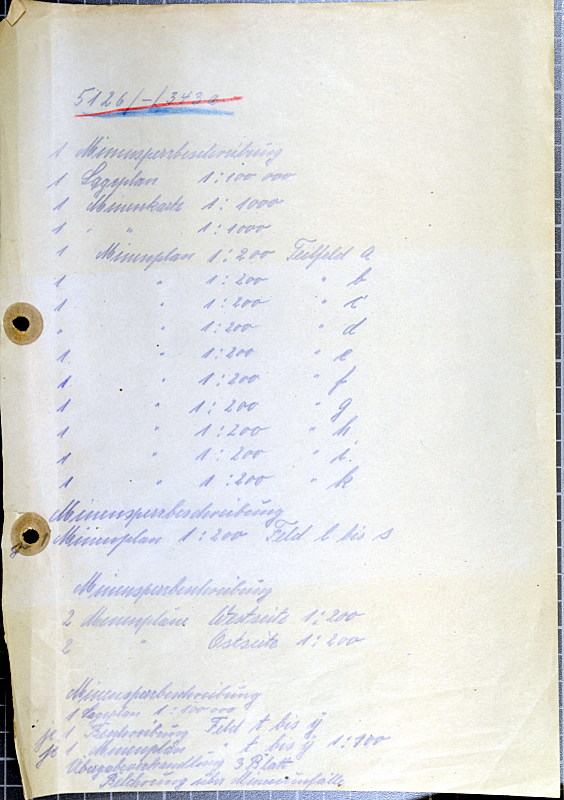 5126/-/343a
1 Minensperrbeschreibung
1 Lageplan 1:100 000
1 Minenkarte 1:1000
1 " " 1:1000
1 Minenplan 1:200 Teilfeld a
1 " 1:200 " b
1 " 1:200 " c
" " 1:200 " d
1 " 1:200 " e
1 " 1:200 " f
1 " 1:200 " g
1 " 1:200 " h
1 " 1:200 " i
1 " 1:200 " k
Minensperrbeschreibung
je 1 Minenplan 1:200 Feld l bis s
Minensperrbeschreibung
2 Minenpläne Westseite 1:200
2 " Ostseite 1:200
Minensperrbeschreibung
1 Lageplan 1:100 000
je 1 Beschreibung Feld t bis ÿ
je 1 Minenplan " t bis ÿ 1:100
Übergabeverhandlung 3 Blatt
Belehrung über Minenunfälle